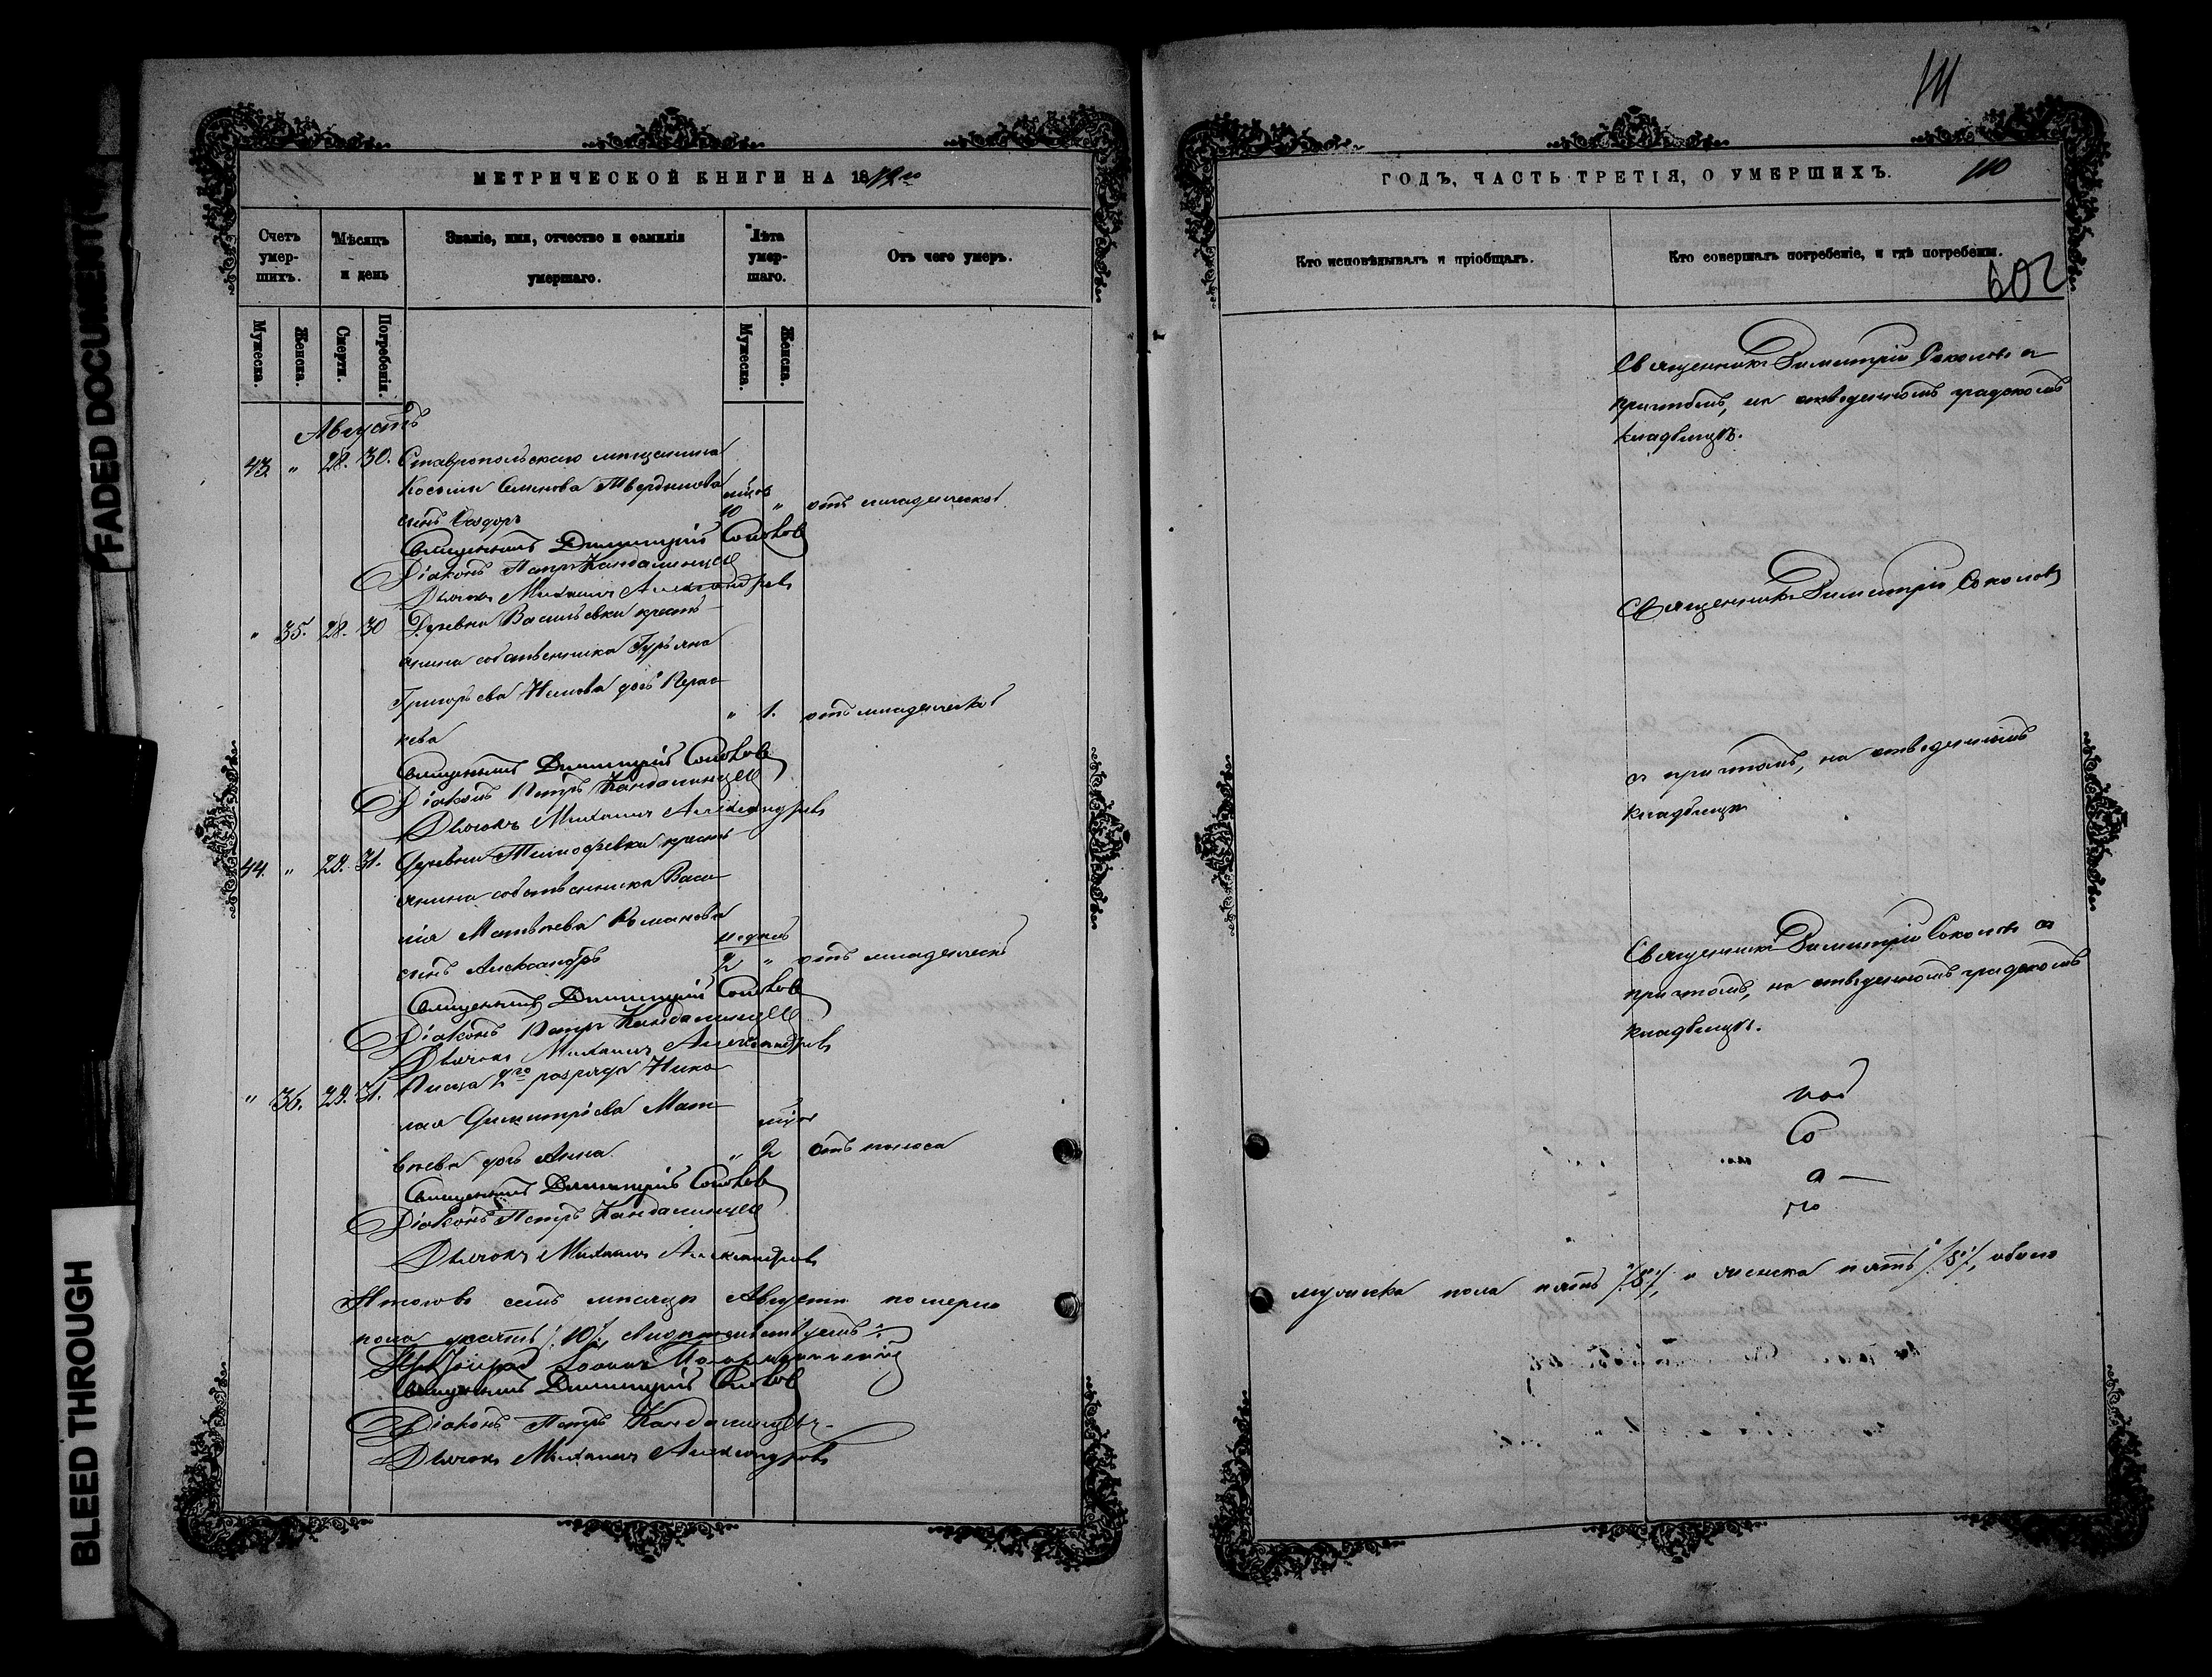 111
МЕТРИЧЕСКОЙ КНИГИ НА 18
ГОДЪ, ЧАСТЬ ТРЕТІЯ, О УМЕРШИХЪ.
110
602
Счетъ умершихъ.
Мѣсяцъ и день
Званіе, имя, отчество и фамилія умершаго.
Лѣта умершаго.
Отъ чего умеръ.
Кто исповѣдывалъ и пріобщалъ.
Кто совершалъ погребеніе, и гдѣ погребены.
Мужеска.
Женска.
Смерти.
Погребенія.
Мужеска.
Женска.
Августъ
43. " 28. 30. Ставропольскаго мѣщанина
Косьмы Семенова
сынъ Ѳеодоръ 10 " отъ младенческой
Священникъ Димитрій Соколовъ
Діаконъ Петръ Кандалинцевъ
Дьячокъ Михаилъ Александровъ
Священникъ Димитрій Соколовъ съ
причтомъ, на отведенномъ градскомъ
кладбищѣ.
" 35. 28. 30 Деревни Васильевки кресть-
янина собственника Гурьяна
Григорьева дочь Перас-
кева " 1. отъ младенческой
Священникъ Димитрій Соколовъ
Діаконъ Петръ Кандалинцевъ
Дьячокъ Михаилъ Александровъ
Священникъ Димитрій Соколовъ
съ причтомъ, на отведенномъ
кладбищѣ
44. " 29. 31. Деревни Тимофеевки кресть-
янина собственника Васи-
лія Матвѣева Романова
сынъ Александръ недѣль 2 " отъ младенческой
Священникъ Димитрій Соколовъ
Діаконъ Петръ Кандалинцевъ
Дьячокъ Михаилъ Александровъ
Священникъ Димитрій Соколовъ съ
причтомъ, на отведенномъ градскомъ
кладбищѣ.
" 36. 29. 31. Писца 2го разряда Нико-
лая Димитріева Мат-
вѣева дочь Анна " 2 отъ поноса
Священникъ Димитрій Соколовъ
Діаконъ Петръ Кандалинцевъ
Дьячокъ Михаилъ Александровъ
Итого въ семъ мѣсяцѣ Августѣ померло
мужеска пола пять /5/, и женска пять /5/, обоего
пола десять /10/.
Священникъ Димитрій Соколовъ
Діаконъ Петръ Кандалинцевъ
Дьячокъ Михаилъ Александровъ
FADED DOCUMENT(
BLEED THROUGH